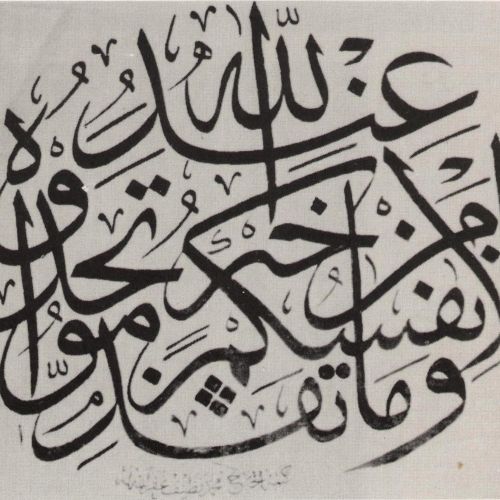 وما تقدموا لأنفسكم من خير تجدوه عند الله